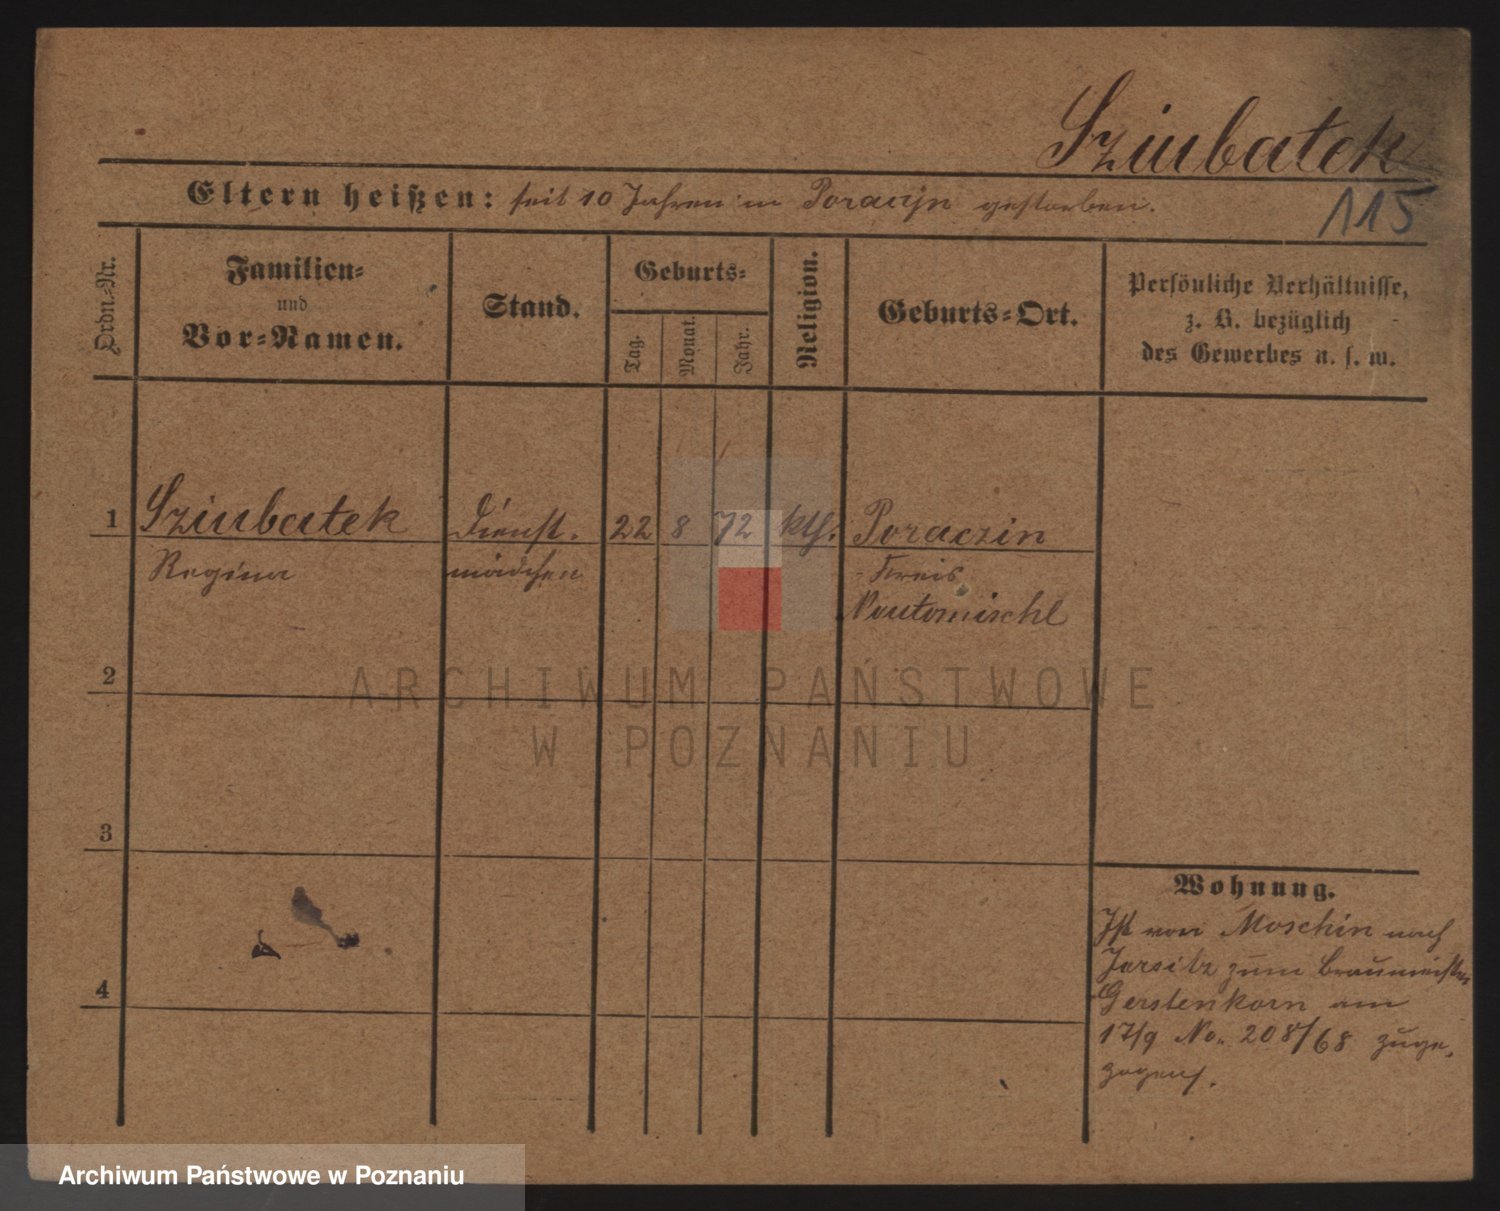 Sziubatek
115
Eltern heißen: seit 10 Jahren in Poraczyn gestorben.
Ordn.-Nr.
Familien-
und
Vor-Namen.
Stand.
Geburts-
Tag.
Monat.
Jahr.
Religion.
Geburts-Ort.
Persönliche Verhältnisse,
z. B. bezüglich
des Gewerbes u. s. w.
1 Sziubatek Dienst- 22 8 72 kth. Poraczin
Regina mädchen Kreis
Neutomischl
2
ARCHIWUM PAŃSTWOWE
W POZNANIU
3
4
Wohnung.
Ist von Moschin nach
Jersitz zum Braumeister
Gerstenkorn am
17/9 No. 208/68 zuge-
zogen.
Archiwum Państwowe w Poznaniu